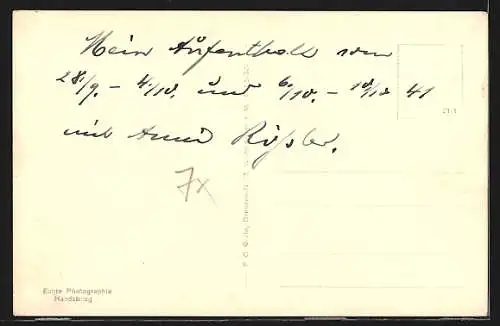 Mein Aufenthalt vom
28./9. – 4./10. und 6./10. – 10/10 41
mit Anni Rößler.
7x
Echte Photographie
Handabzug